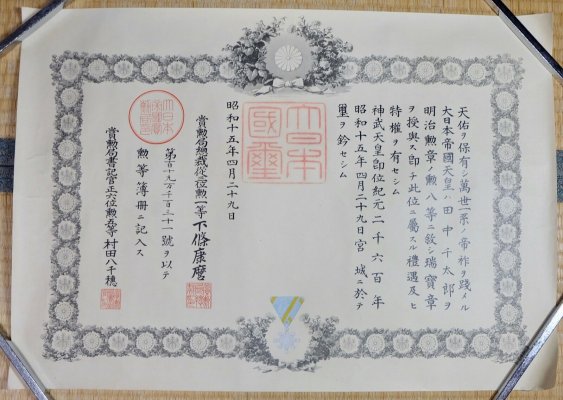 天佑ヲ保有シ萬世一系ノ帝祚ヲ踐メル
大日本帝國天皇ハ田中千太郎ヲ
明治勲章ノ勲八等ニ敘シ瑞寶章
ヲ授與ス即チ此位ニ屬スル禮遇及ヒ
特權ヲ有セシム
神武天皇即位紀元二千六百年
昭和十五年四月二十九日宮城ニ於テ
璽ヲ鈐セシム
大日本
國璽
昭和十五年四月二十九日
賞勲局總裁從二位勲一等下條康麿
第百十九万千百三十一號ヲ以テ
勲等簿册ニ記入ス
賞勲局書記官正六位勲五等村田八千穂